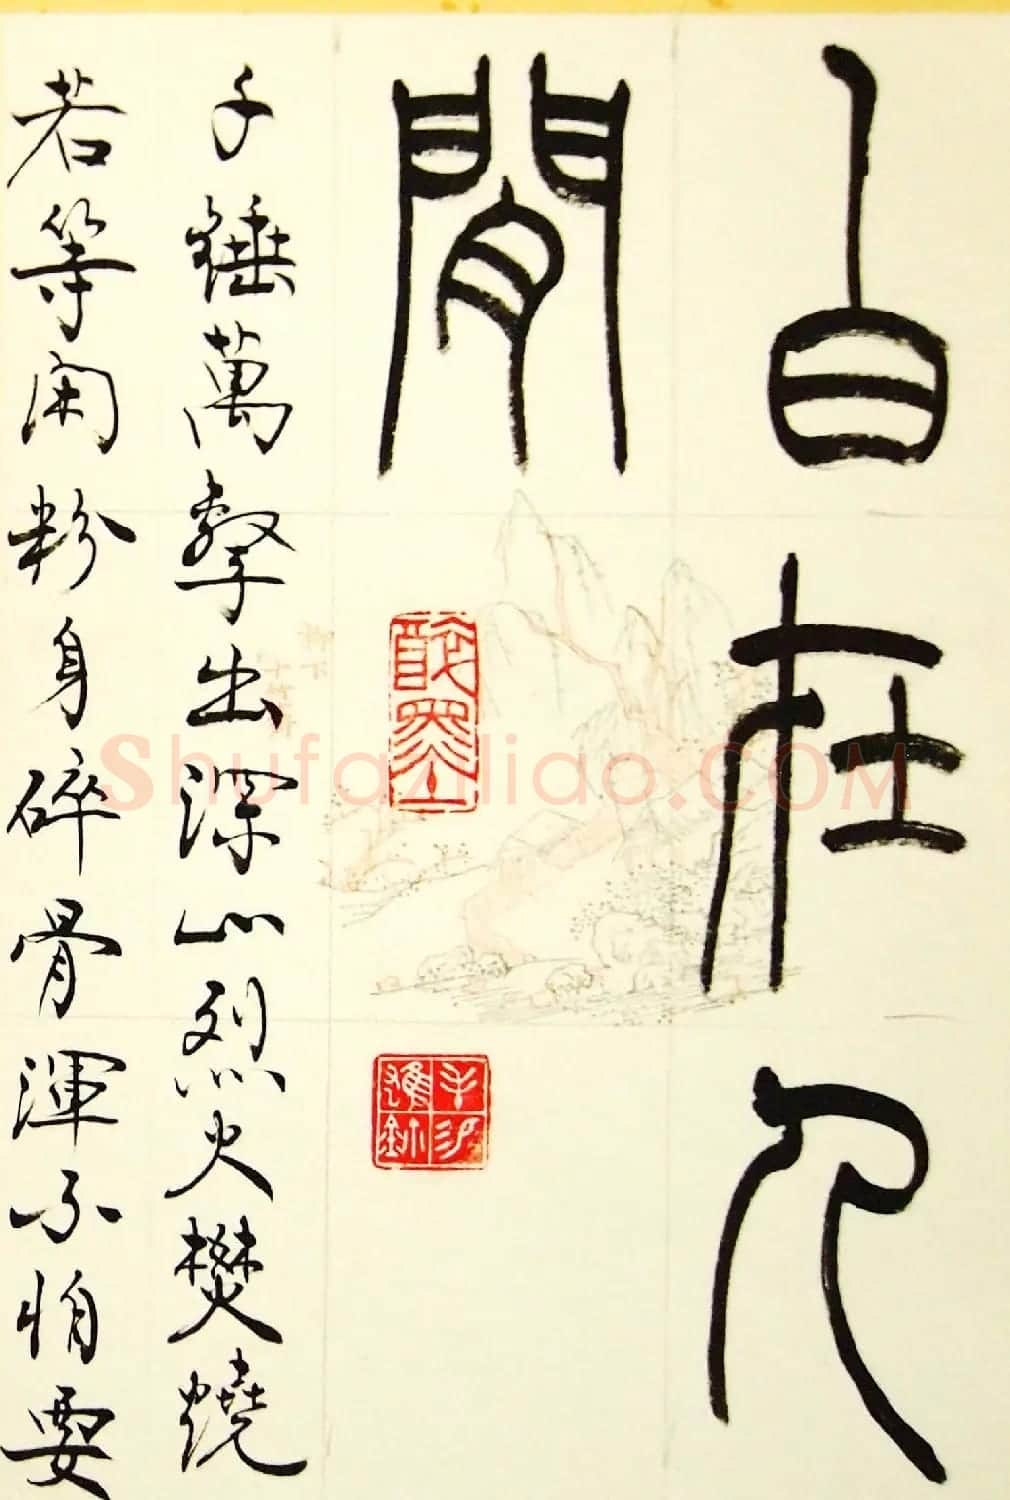 白在人
間
千錘萬擊出深山烈火焚燒
若等閑粉身碎骨渾不怕要
Shufaziliao.COM